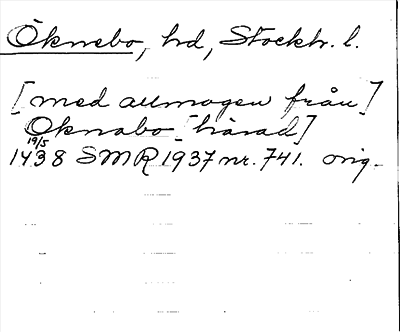 Öknebo, hd, Stockh. l.
[med allmogen från]
Oknabo [härad]
19/5
1438 SMR 1937 nr. 741. orig.